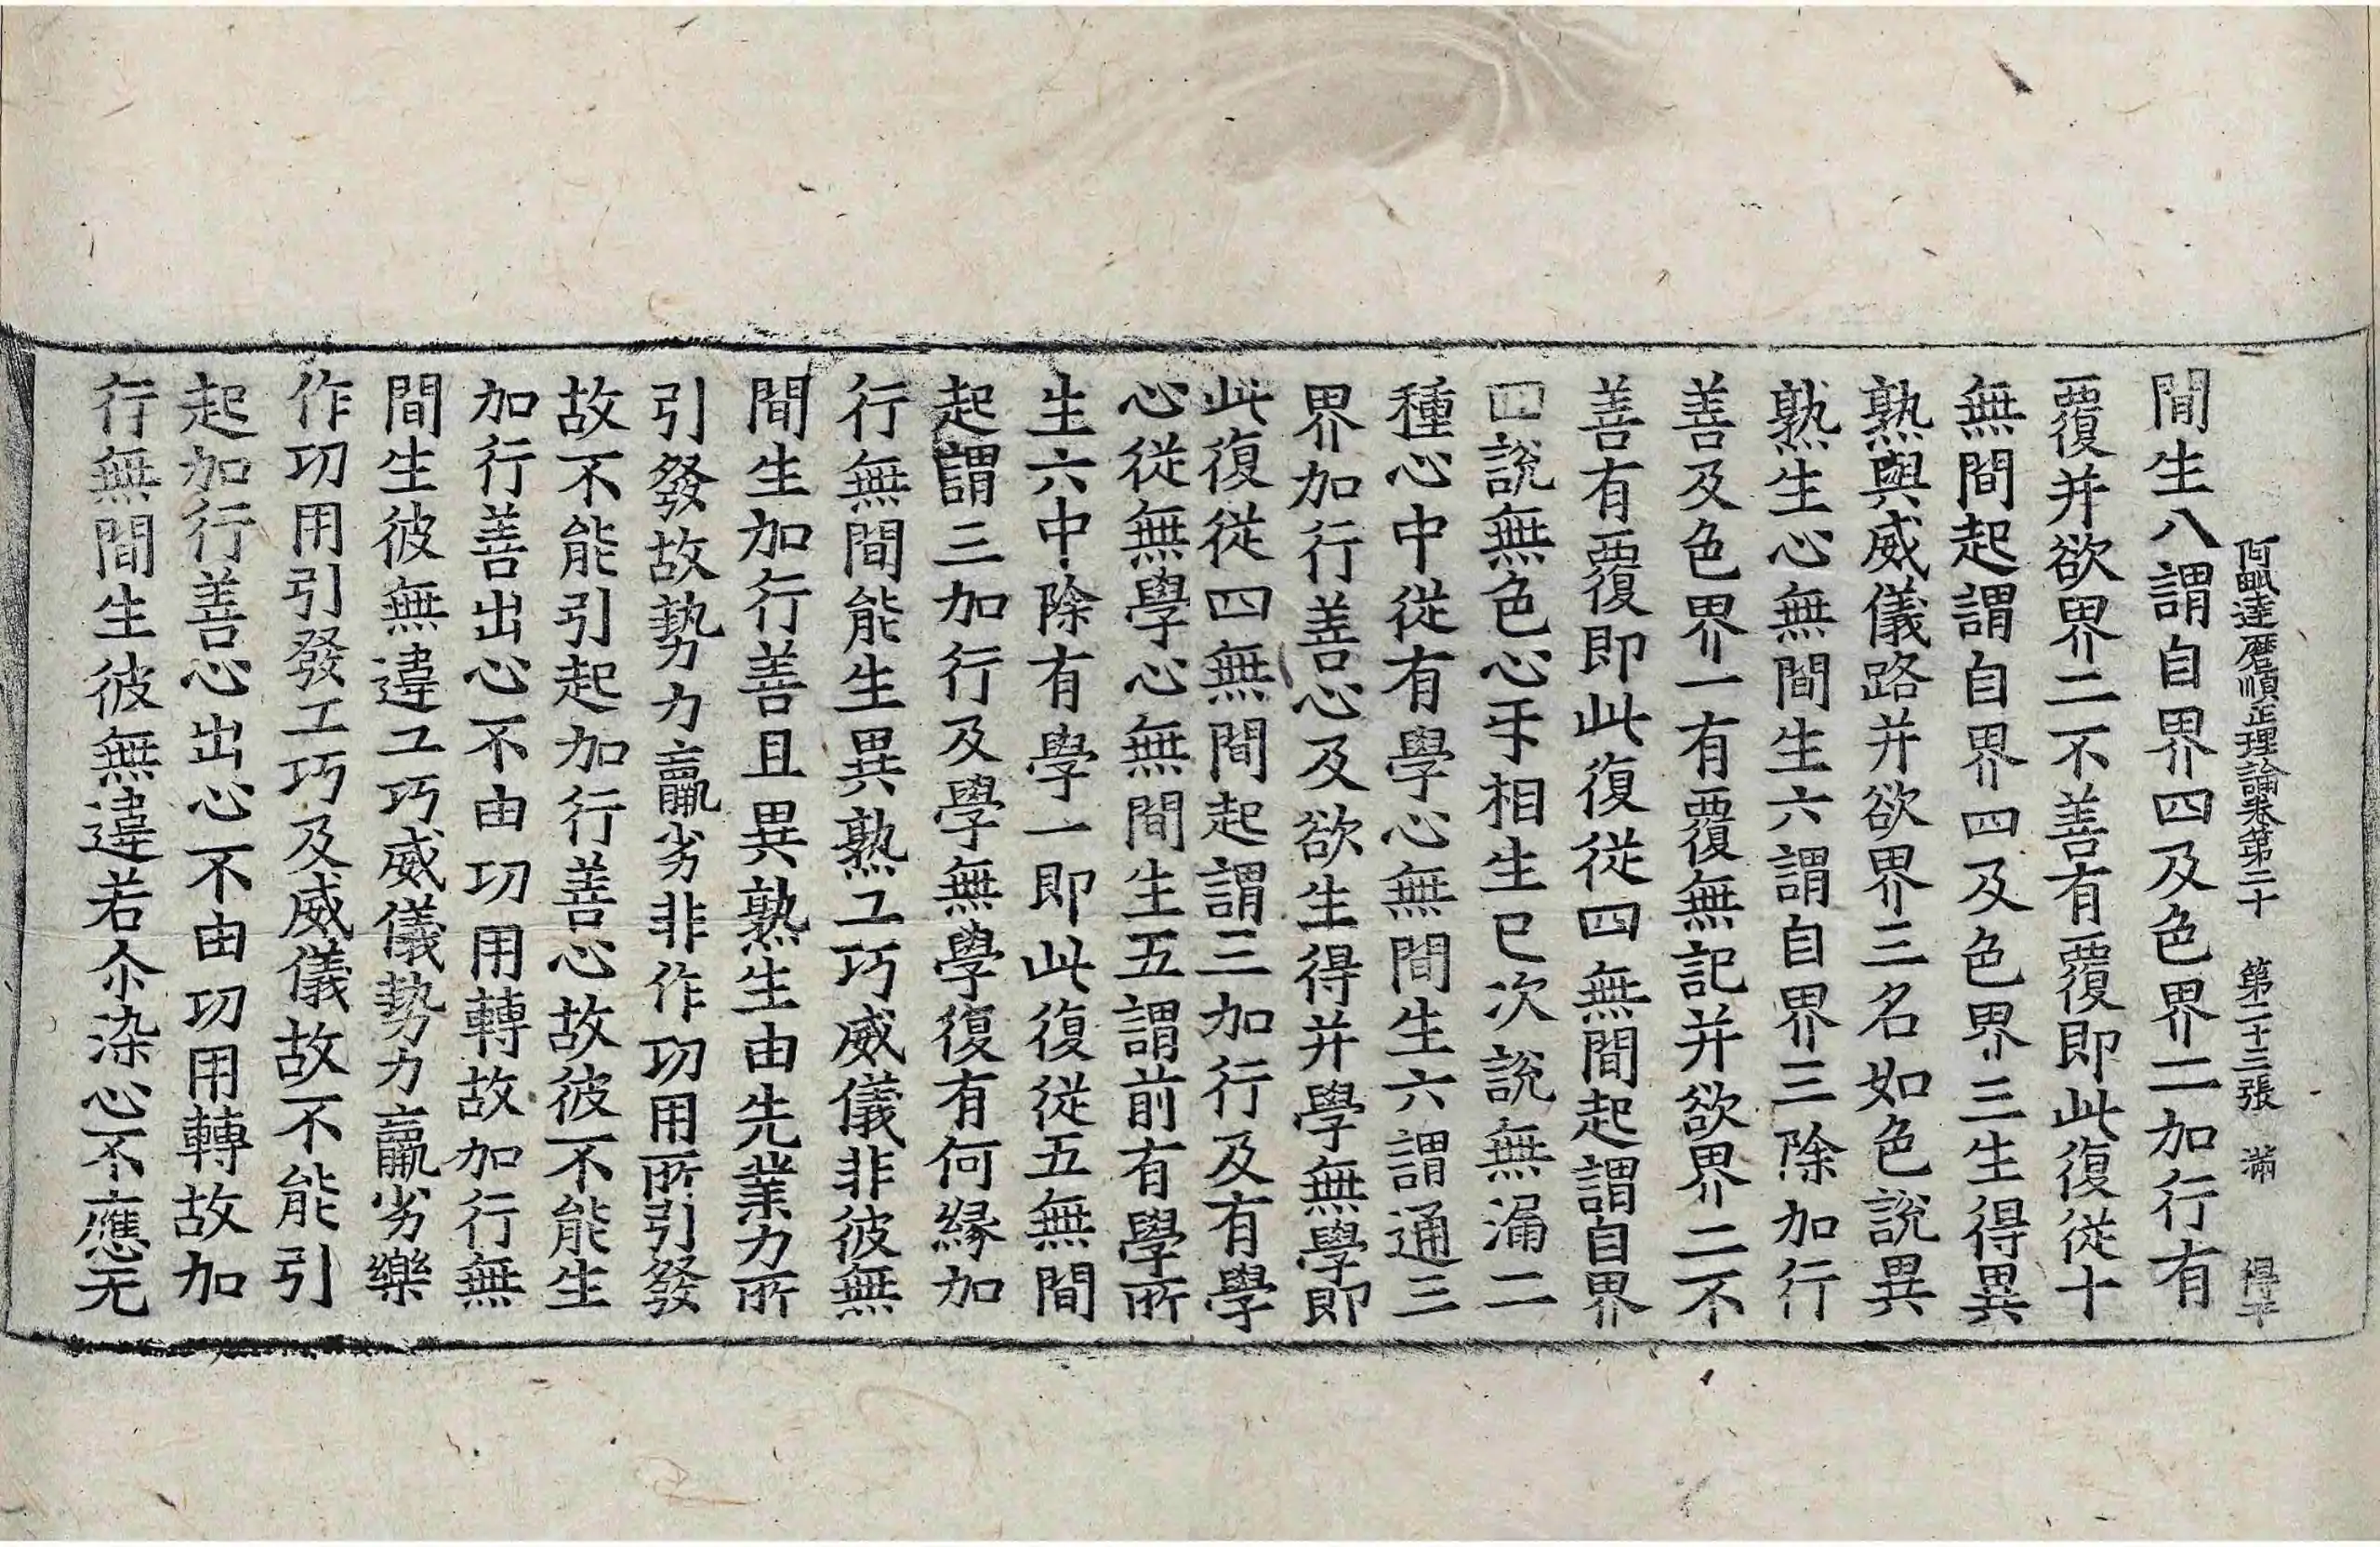 阿毗達磨順正理論卷第二十　第二十三張　滿　得平
間生八謂自界四及色界二加行有
覆并欲界二不善有覆即此復從十
無間起謂自界四及色界三生得異
熟與威儀路并欲界三名如色說異
熟生心無間生六謂自界三除加行
善及色界一有覆無記并欲界二不
善有覆即此復從四無間起謂自界
四說無色心㸦相生已次說無漏二
種心中從有學心無間生六謂通三
界加行善心及欲生得并學無學即
此復從四無間起謂三加行及有學
心從無學心無間生五謂前有學所
生六中除有學一即此復從五無間
起謂三加行及學無學復有何緣加
行無間能生異熟工巧威儀非彼無
間生加行善且異熟生由先業力所
引發故勢力羸劣非作功用所引發
故不能引起加行善心故彼不能生
加行善出心不由功用轉故加行無
間生彼無違工巧威儀勢力羸劣樂
作功用引發工巧及威儀故不能引
起加行善心出心不由功用轉故加
行無間生彼無違若尒染心不應无